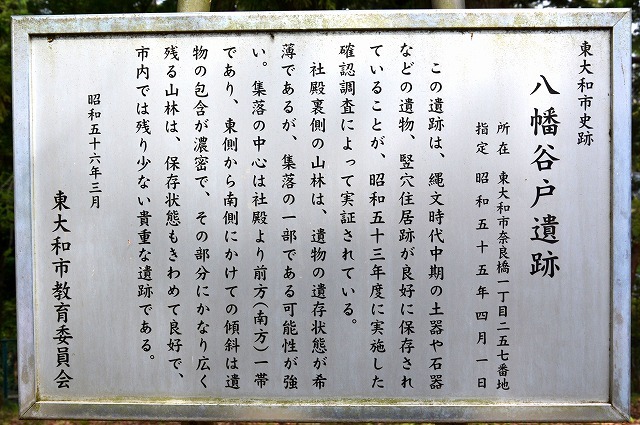 東大和市史跡
八幡谷戸遺跡
所在 東大和市奈良橋一丁目二五七番地
指定 昭和五十五年四月一日
この遺跡は、縄文時代中期の土器や石器
などの遺物、竪穴住居跡が良好に保存され
ていることが、昭和五十三年度に実施した
確認調査によって実証されている。
社殿裏側の山林は、遺物の遺存状態が希
薄であるが、集落の一部である可能性が強
い。集落の中心は社殿より前方(南方)一帯
であり、東側から南側にかけての傾斜は遺
物の包含が濃密で、その部分にかなり広く
残る山林は、保存状態もきわめて良好で、
市内では残り少ない貴重な遺跡である。
昭和五十六年三月
東大和市教育委員会